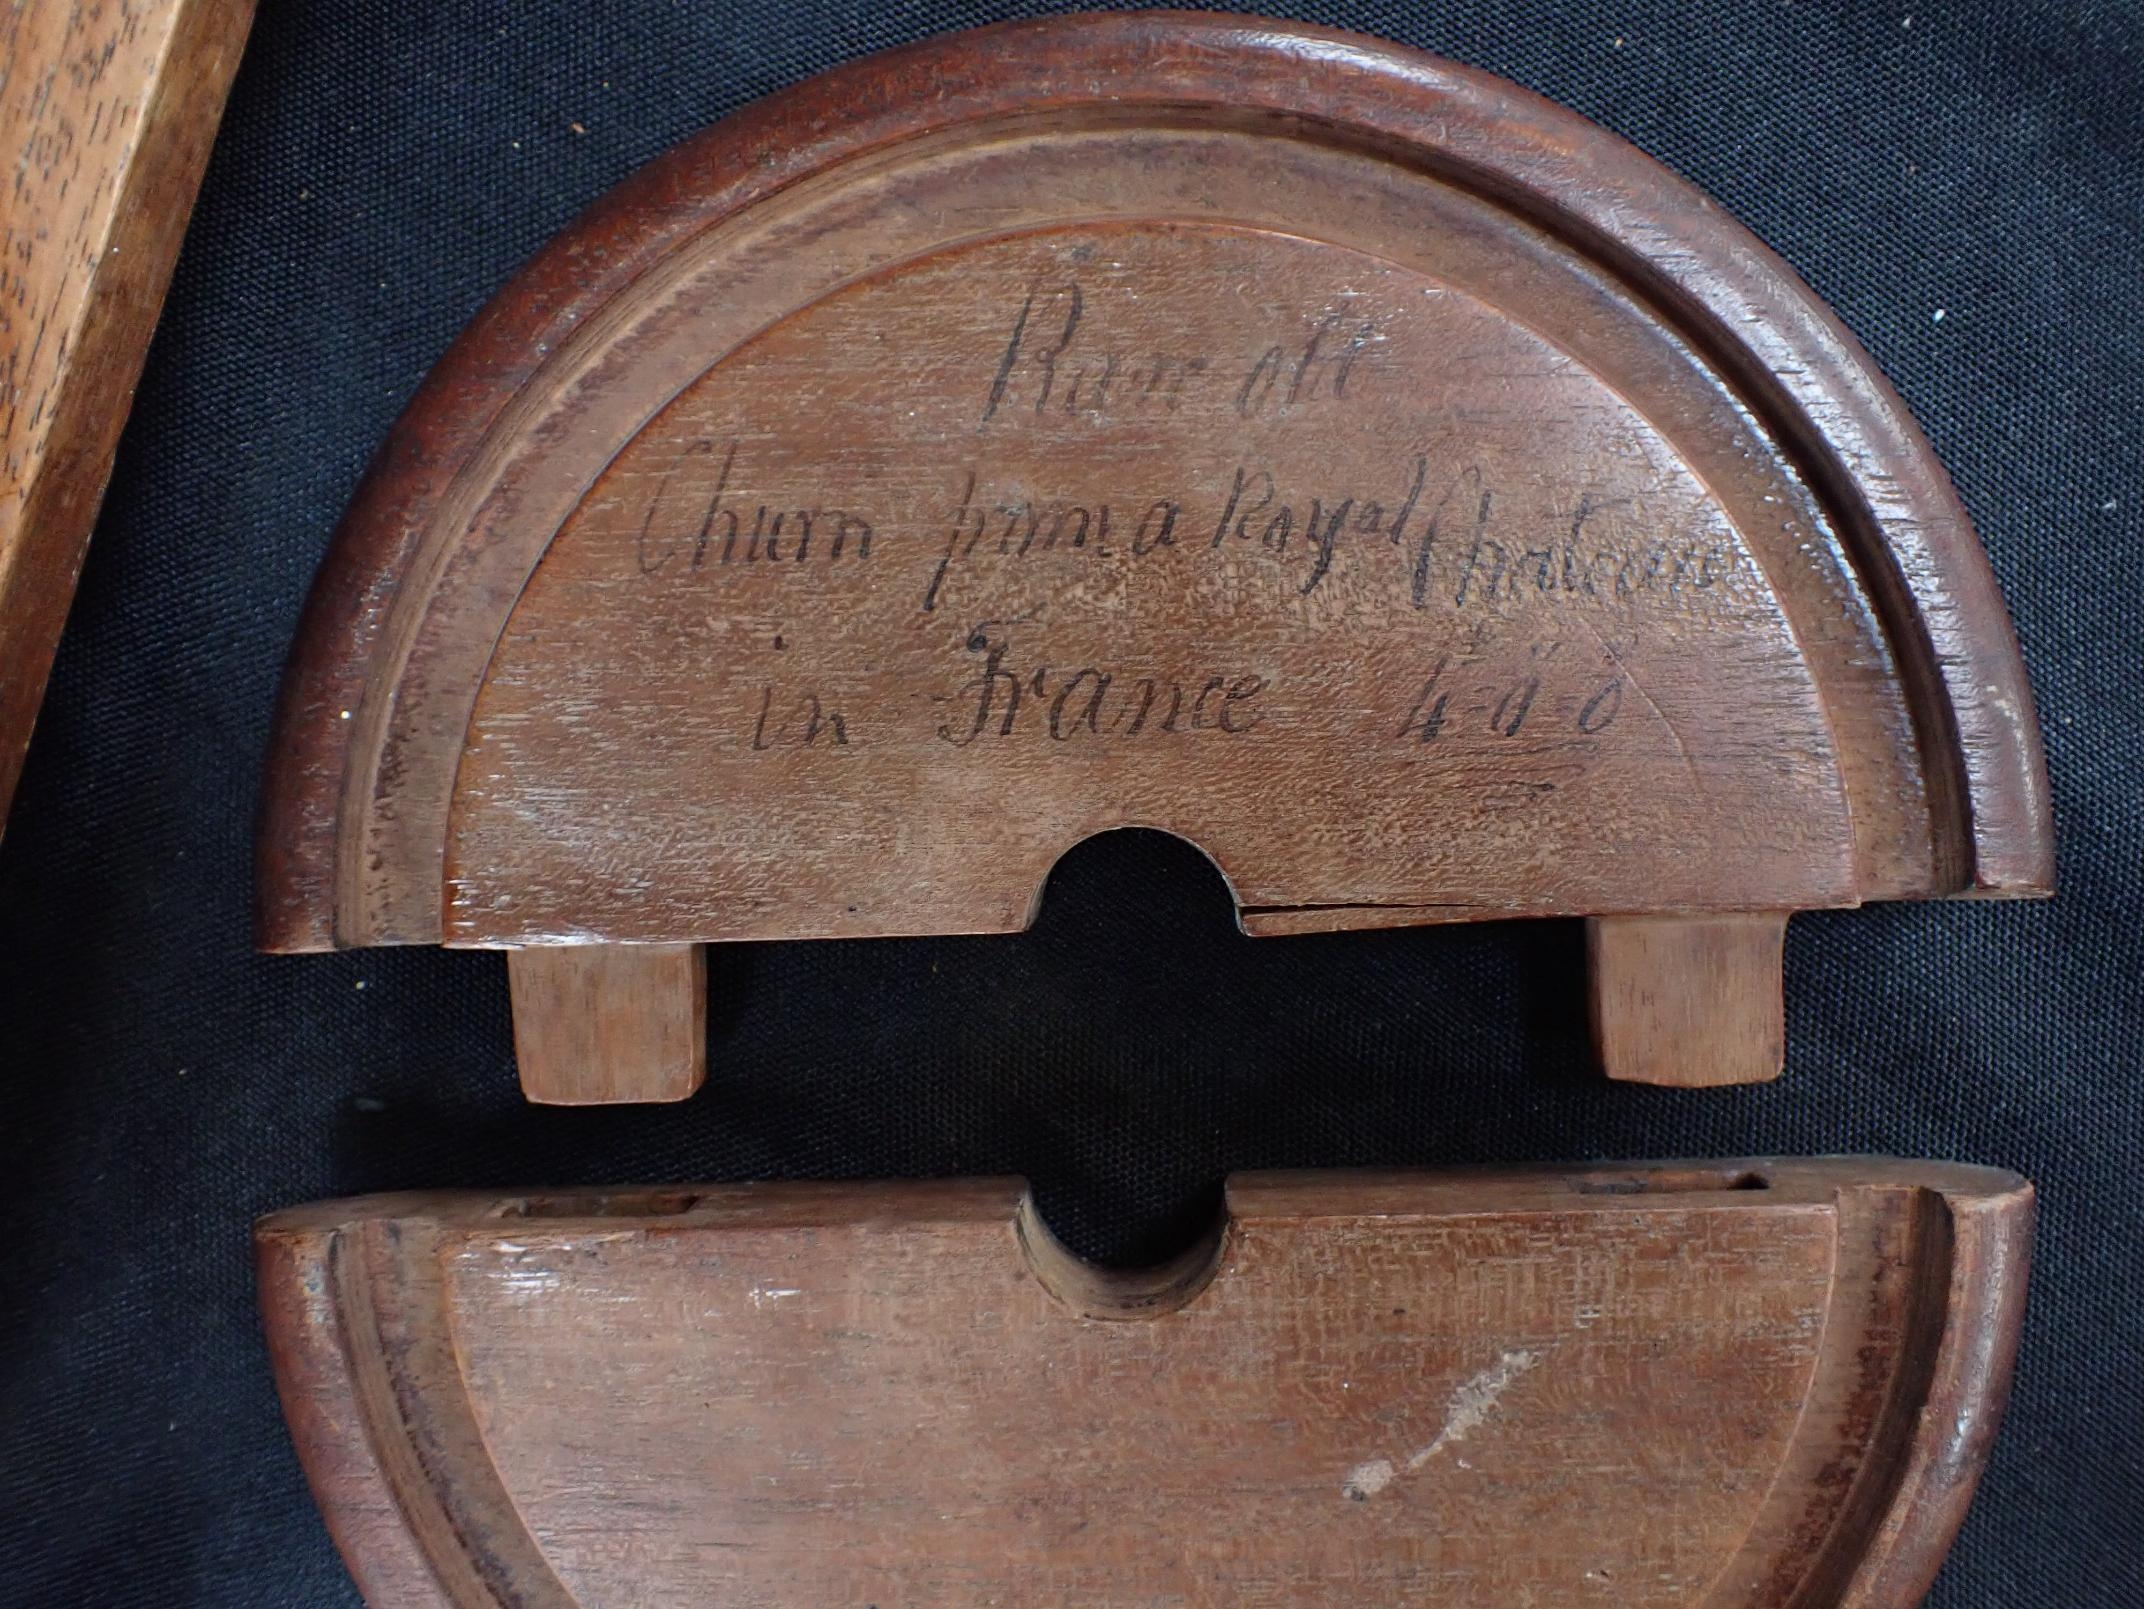 Rare old
Churn from a Royal Chateau
in France 4-0-0